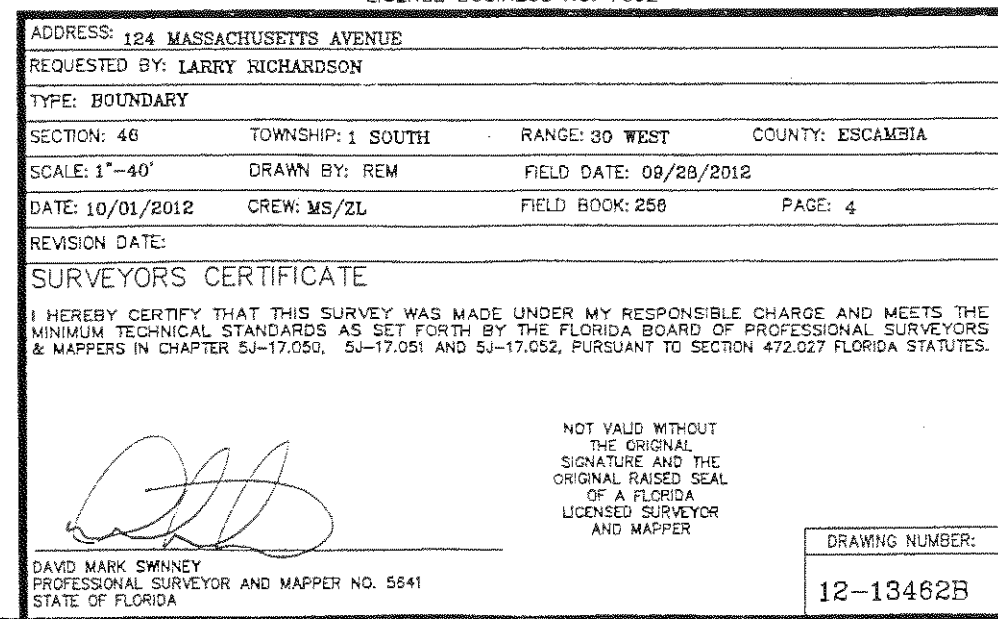 ADDRESS: 124 MASSACHUSETTS AVENUE
REQUESTED BY: LARRY RICHARDSON
TYPE: BOUNDARY
SECTION: 46 TOWNSHIP: 1 SOUTH RANGE: 30 WEST COUNTY: ESCAMBIA
SCALE: 1"-40' DRAWN BY: REM FIELD DATE: 09/28/2012
DATE: 10/01/2012 CREW: MS/ZL FIELD BOOK: 256 PAGE: 4
REVISION DATE:
SURVEYORS CERTIFICATE
I HEREBY CERTIFY THAT THIS SURVEY WAS MADE UNDER MY RESPONSIBLE CHARGE AND MEETS THE
MINIMUM TECHNICAL STANDARDS AS SET FORTH BY THE FLORIDA BOARD OF PROFESSIONAL SURVEYORS
& MAPPERS IN CHAPTER 5J-17.050, 5J-17.051 AND 5J-17.052, PURSUANT TO SECTION 472.027 FLORIDA STATUTES.
NOT VALID WITHOUT
THE ORIGINAL
SIGNATURE AND THE
ORIGINAL RAISED SEAL
OF A FLORIDA
LICENSED SURVEYOR
AND MAPPER
DAVID MARK SWINNEY
PROFESSIONAL SURVEYOR AND MAPPER NO. 5641
STATE OF FLORIDA
DRAWING NUMBER:
12-13462B